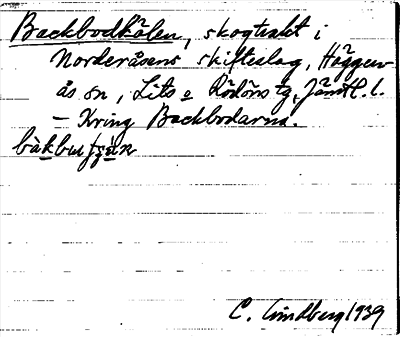 Backbodkölen, skogtrakt i
Norderåsens skifteslag, Häggen-
ås sn, Lits o Rödöns tg, Jämtl. l.
– Kring Backbodarna.
C. Lindberg 1939